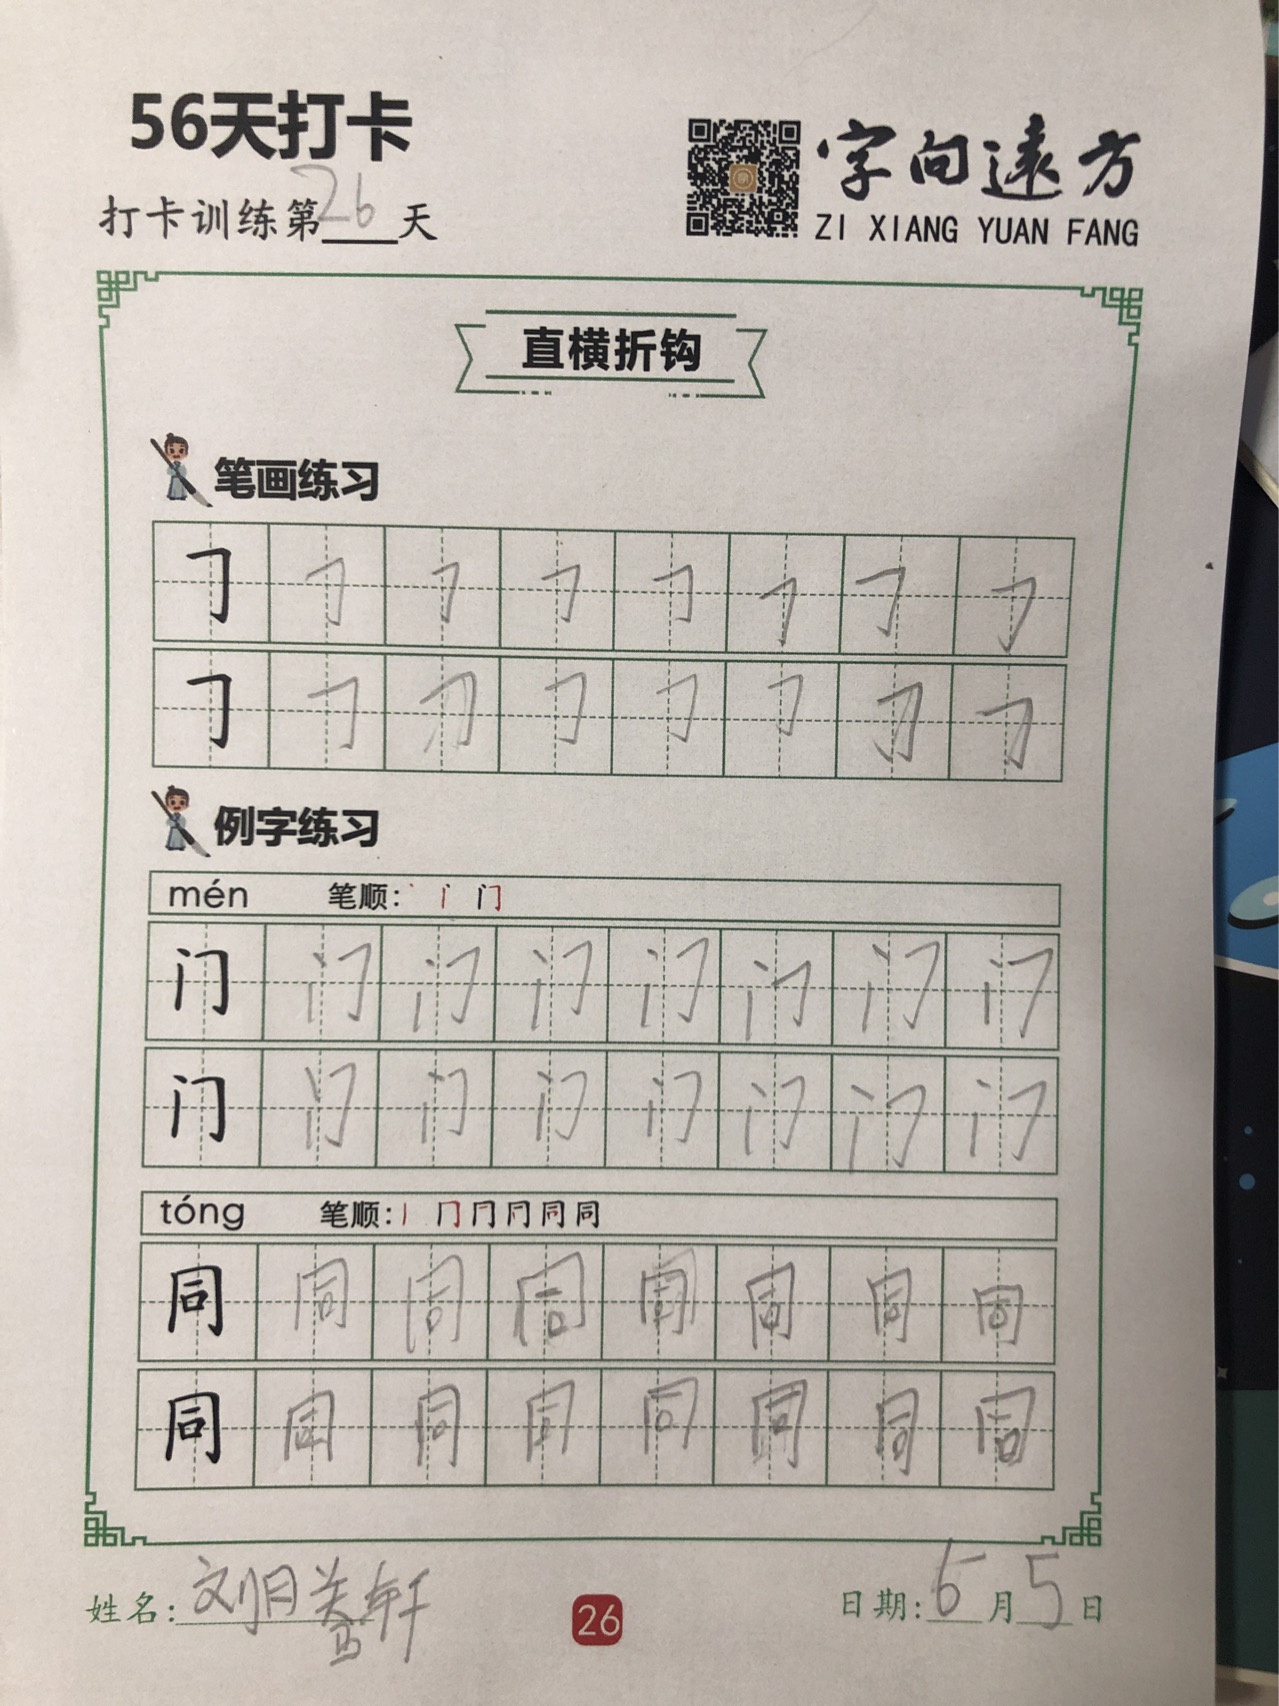 56天打卡
字向遠方
打卡训练第26天
ZI XIANG YUAN FANG
直横折钩
笔画练习
例字练习
mén 笔顺: 丶 门
门 门 门 门 门 门 门 门
门 门 门 门 门 门 门 门
tóng 笔顺: 丨 冂 同 同
同 同 同 同 同 同 同 同
同 同 同 同 同 同 同 同
姓名: 刘 轩 26 日期: 6月5日